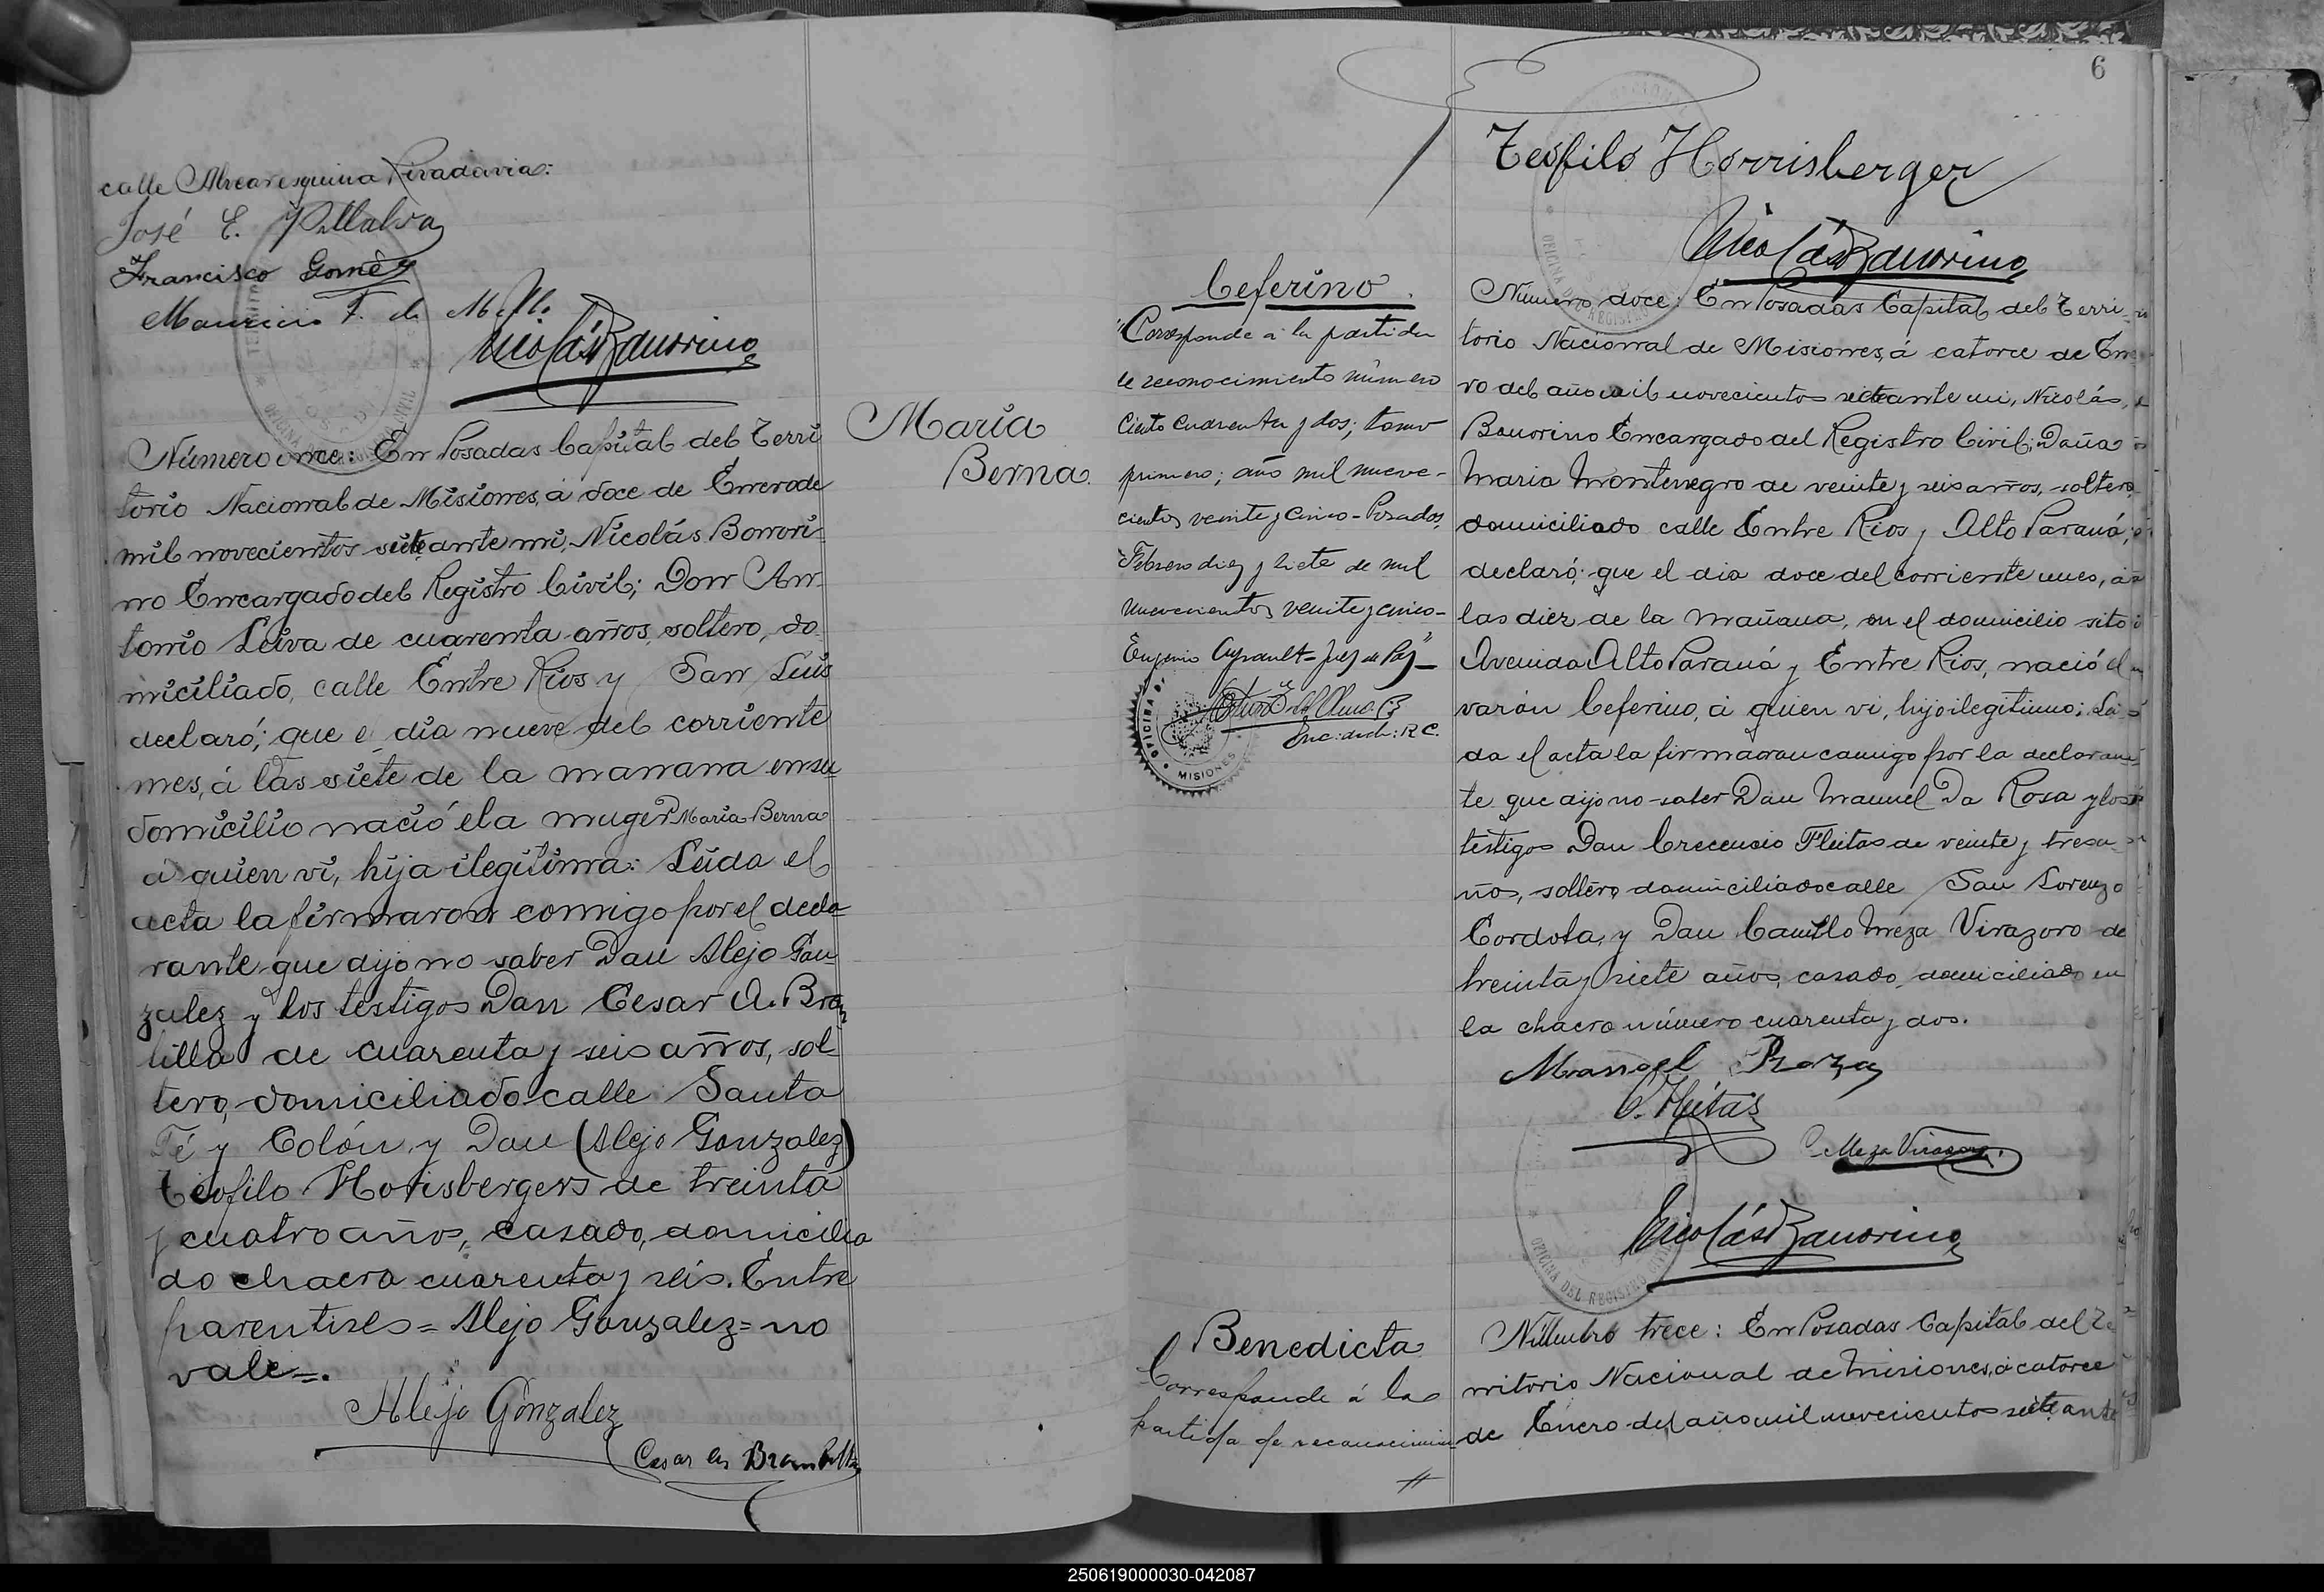 calle Alvear esquina Rivadavia:
José E. Villalva
Francisco Goméz
Mauricio F. de
Nicolás Bonorino
Número once: En Posadas Capital del Terri
torio Nacional de Misiones, á doce de Enero de
mil novecientos siete ante mi, Nicolás Bonori-
no Encargado del Registro Civil; Don An-
tonio Leiva de cuarenta años, soltero, do-
miciliado, calle Entre Rios y San Luis
declaró; que e día nueve del corriente
mes, á las siete de la manana en su
domicilio nació el a muger Maria Berna
á quien vi, hija ilegitima: Leida el
acta la firmaron comigo por el decla-
rante que dijo no saber Don Alejo Gon
zalez y los testigos Don Cesar A. Bram
billa de cuarenta y seis años, sol-
tero, domiciliado calle Santa
Fé y Colón, y Don (Alejo Gonzalez)
Teofilo Horisbergers de treinta
y cuatro años, casado, domicilia
do chacra cuarenta y seis. Entre
parentises = Alejo Gonzalez = no
vale=.
Alejo Gonzalez
Cesar A. Brambilla
María
Berna
6
Teófilo Horrisberger
Nicolás Bonorino
Ceferino
"Corresponde a la partida
de reconocimiento número
ciento cuarenta y dos; tomo
primero; año mil nueve-
cientos veinte y cinco - Posadas,
Febrero diez y siete de mil
novecientos veinte y cinco -
Eugenio - Juez de Paz"-
Enc: R.C.
OFICINA D
MISIONES
Número doce: En Posadas Capital del Terri-
torio Nacional de Misiones, á catorce de Ene
ro del año mil novecientos siete ante mi, Nicolás,
Bonorino Encargado del Registro Civil; Doña
Maria Montenegro de veinte y seis años, soltera,
domiciliada calle Entre Rios y Alto Paraná,
declaró: que el dia doce del corriente mes, á
las diez de la mañana, en el domicilio sito
Avenida Alto Paraná y Entre Rios, nació el
varón Ceferino, á quien vi, hijo ilegitimo; Lei-
da el acta la firmaron comigo por la declaran
te que dijo no saber Don Manuel Da Rosa y los
testigos Don Crecencio Fleitas de veinte y tres a-
ños, soltero, domiciliado calle San Lorenzo
Cordoba, y Don Camilo Meza Virazoro de
treinta y siete años, casado, domiciliado en
la chacra número cuarenta y dos.
Manoel Roza
C. Fleitas
C Meza Virasoro
Nicolás Bonorino
OFICINA DEL REGISTRO CIVIL
Benedicta
Corresponde á la
partida de reconocimien
Número trece: En Posadas Capital del Te
rritorio Nacional de Misiones, á catorce
de Enero del año mil novecientos siete ante
250619000030-042087